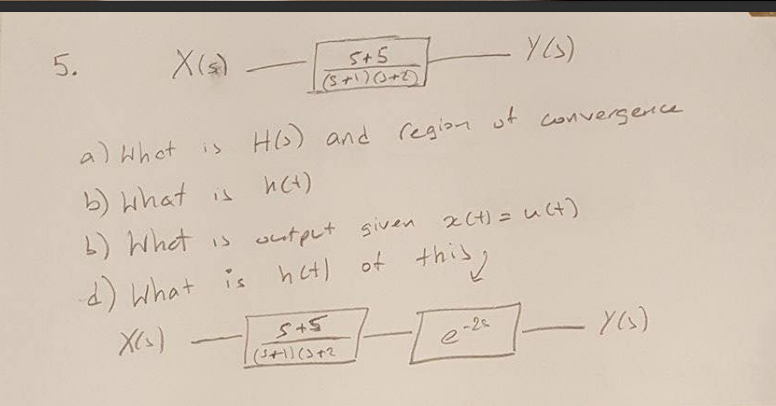 5. X(s) s+5 Y(s)
(s+1)(s+2)
a) What is H(s) and region of convergence
b) What is h(t)
b) What is output given x(t) = u(t)
d) What is h(t) of this
X(s) s+5 e^-2s Y(s)
(s+1)(s+2